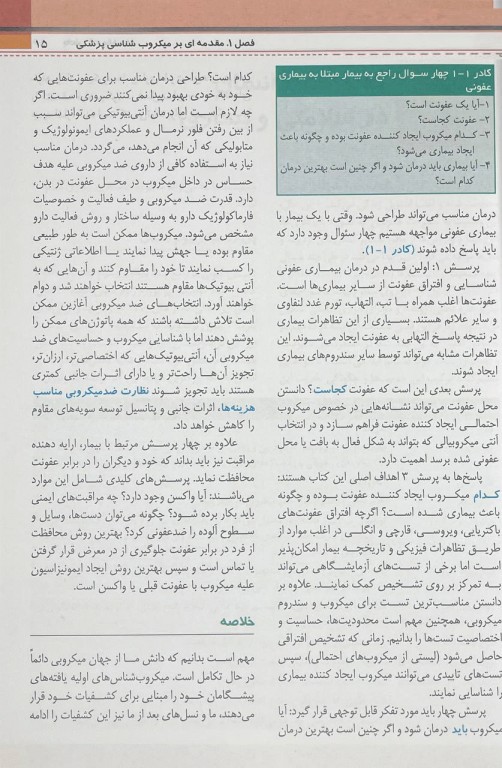 فصل ۱. مقدمه ای بر میکروب شناسی پزشکی
۱۵
کادر ۱-۱ چهار سوال راجع به بیمار مبتلا به بیماری
عفونی
۱-آیا یک عفونت است؟
۲- عفونت کجاست؟
۳- کدام میکروب ایجاد کننده عفونت بوده و چگونه باعث
ایجاد بیماری می‌شود؟
۴- آیا بیماری باید درمان شود و اگر چنین است بهترین درمان
کدام است؟
درمان مناسب می‌تواند طراحی شود. وقتی با یک بیمار با
بیماری عفونی مواجهه هستیم چهار سئوال وجود دارد که
باید پاسخ داده شوند (کادر ۱-۱).
پرسش ۱: اولین قدم در درمان بیماری عفونی
شناسایی و افتراق عفونت از سایر بیماری‌ها است.
عفونت‌ها اغلب همراه با تب، التهاب، تورم غدد لنفاوی
و سایر علائم هستند. بسیاری از این تظاهرات بیماری
در نتیجه پاسخ التهابی به عفونت ایجاد می‌شوند. این
تظاهرات مشابه می‌تواند توسط سایر سندروم‌های بیماری
ایجاد شوند.
پرسش بعدی این است که عفونت کجاست؟ دانستن
محل عفونت می‌تواند نشانه‌هایی در خصوص میکروب
احتمالی ایجاد کننده عفونت فراهم سازد و در انتخاب
آنتی میکروبیالی که بتواند به شکل فعال به بافت یا محل
عفونی شده برسد اهمیت دارد.
پاسخ‌ها به پرسش ۳ اهداف اصلی این کتاب هستند:
کدام میکروب ایجاد کننده عفونت بوده و چگونه
باعث بیماری شده است؟ اگرچه افتراق عفونت‌های
باکتریایی، ویروسی، قارچی و انگلی در اغلب موارد از
طریق تظاهرات فیزیکی و تاریخچه بیمار امکان‌پذیر
است اما برخی از تست‌های آزمایشگاهی می‌تواند
به تمرکز بر روی تشخیص کمک نمایند. علاوه بر
دانستن مناسب‌ترین تست برای میکروب و سندروم
میکروبی، همچنین مهم است محدودیت‌ها، حساسیت و
اختصاصیت تست‌ها را بدانیم. زمانی که تشخیص افتراقی
حاصل می‌شود (لیستی از میکروب‌های احتمالی)، سپس
تست‌های تاییدی می‌توانند میکروب ایجاد کننده بیماری
را شناسایی نمایند.
پرسش چهار باید مورد تفکر قابل توجهی قرار گیرد: آیا
میکروب باید درمان شود و اگر چنین است بهترین درمان
کدام است؟ طراحی درمان مناسب برای عفونت‌هایی که
خود به خودی بهبود پیدا نمی‌کنند ضروری است. اگر
چه لازم است اما درمان آنتی‌بیوتیکی می‌تواند سبب
از بین رفتن فلور نرمال و عملکردهای ایمونولوژیک و
متابولیکی که آن انجام می‌دهد، می‌گردد. درمان مناسب
نیاز به استفاده کافی از داروی ضد میکروبی علیه هدف
حساس در داخل میکروب در محل عفونت در بدن،
دارد. قدرت ضد میکروبی و طیف فعالیت و خصوصیات
فارماکولوژیک دارو به وسیله ساختار و روش فعالیت دارو
مشخص می‌شود. میکروب‌ها ممکن است به طور طبیعی
مقاوم بوده یا جهش پیدا نمایند یا اطلاعاتی ژنتیکی
را کسب نمایند تا خود را مقاوم کنند و آن‌هایی که به
آنتی بیوتیک‌ها مقاوم هستند انتخاب خواهند شد و دوام
خواهند آورد. انتخاب‌های ضد میکروبی آغازین ممکن
است تلاش داشته باشند که همه پاتوژن‌های ممکن را
پوشش دهند اما با شناسایی میکروب و حساسیت‌های ضد
میکروبی آن، آنتی‌بیوتیک‌هایی که اختصاصی‌تر، ارزان‌تر،
تجویز آن‌ها راحت‌تر و یا دارای اثرات جانبی کمتری
هستند باید تجویز شوند نظارت ضدمیکروبی مناسب
هزینه‌ها، اثرات جانبی و پتانسیل توسعه سویه‌های مقاوم
را کاهش خواهد داد.
علاوه بر چهار پرسش مرتبط با بیمار، ارایه دهنده
مراقبت نیز باید بداند که خود و دیگران را در برابر عفونت
محافظت نماید. پرسش‌های کلیدی شامل این موارد
می‌باشند: آیا واکسن وجود دارد؟ چه مراقبت‌های ایمنی
باید بکار برده شود؟ چگونه می‌توان دست‌ها، وسایل و
سطوح آلوده را ضدعفونی کرد؟ بهترین روش محافظت
از فرد در برابر عفونت جلوگیری از در معرض قرار گرفتن
یا تماس است و سپس بهترین روش ایجاد ایمونیزاسیون
علیه میکروب با عفونت قبلی یا واکسن است.
خلاصه
مهم است بدانیم که دانش ما از جهان میکروبی دائماً
در حال تکامل است. میکروب‌شناس‌های اولیه یافته‌های
پیشگامان خود را مبنایی برای کشفیات خود قرار
می‌دهند، ما و نسل‌های بعد از ما نیز این کشفیات را ادامه